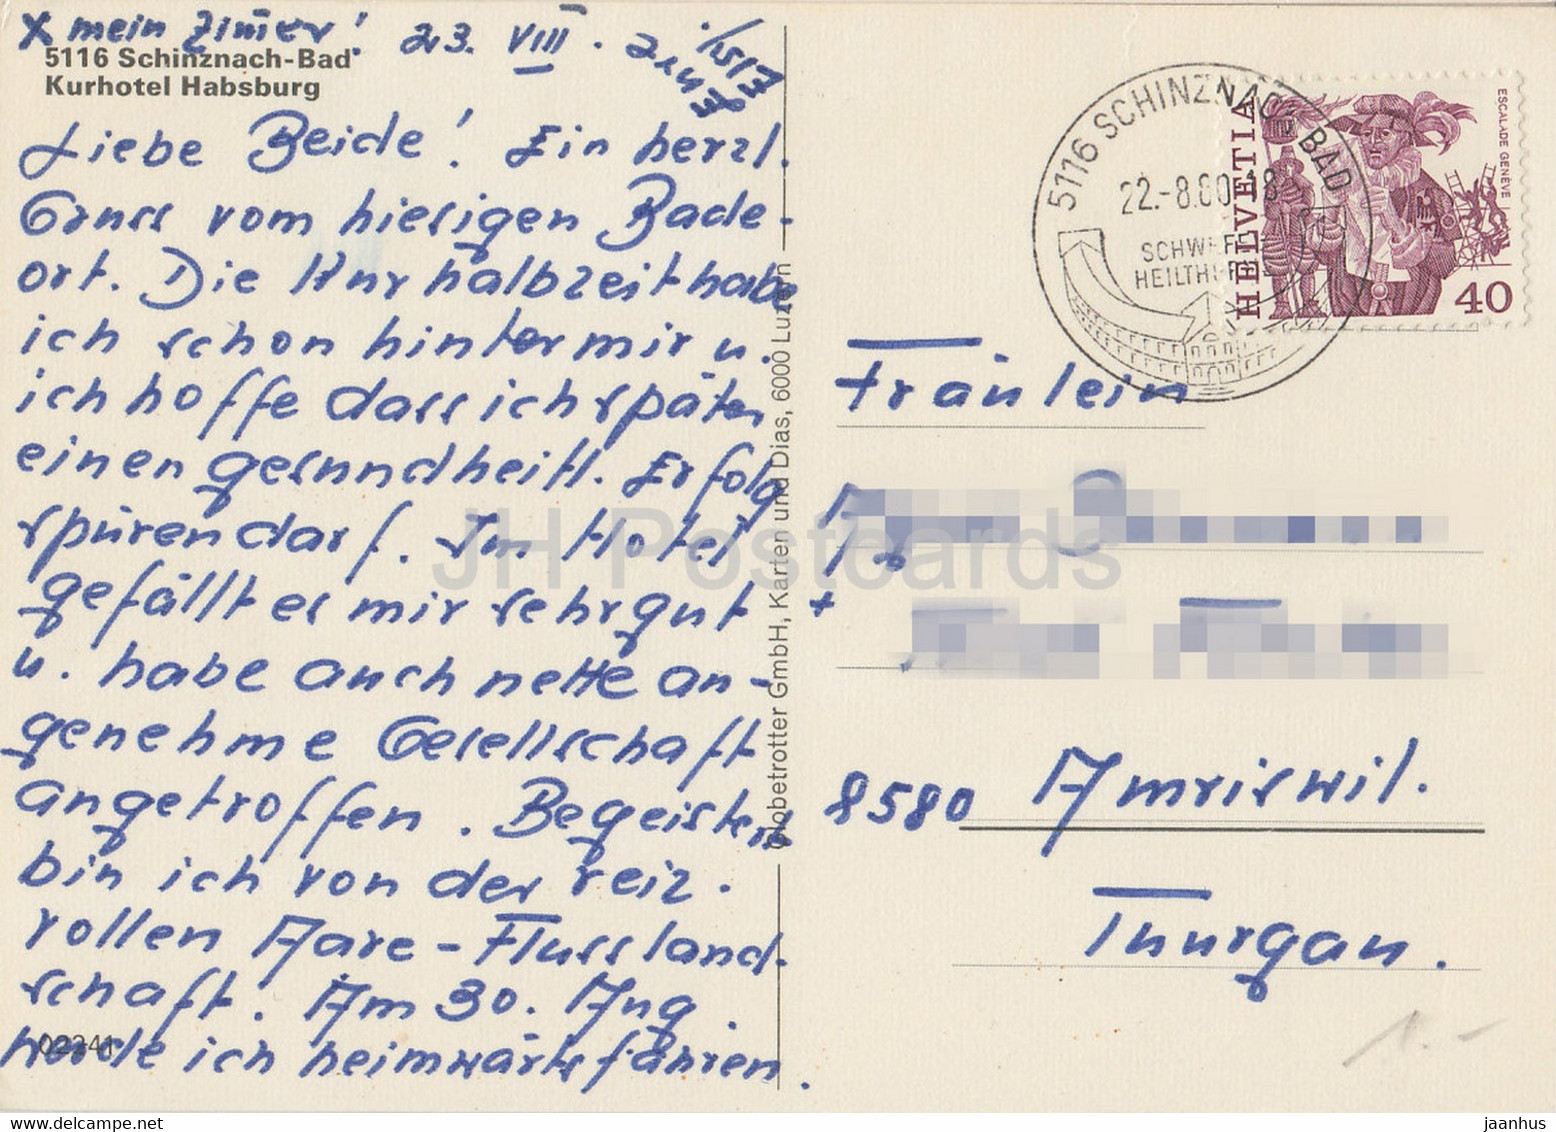 X mein Zimmer! 23. VIII.
5116 Schinznach-Bad
Kurhotel Habsburg
Liebe Beide! Ein herzl.
Gruss vom hiesigen Bade-
ort. Die Kur halbzeit habe
ich schon hinter mir u.
ich hoffe dass ich später
einen gesundheitl. Erfolg
spüren darf. Im Hotel
gefällt es mir sehr gut
u. habe auch nette an-
genehme Gesellschaft
angetroffen. Begeistert
bin ich von der reiz-
vollen Aare-Flussland-
schaft. Am 30. Aug.
werde ich heimwärts fahren.
02241
Globetrotter GmbH, Karten und Dias, 6000 Luzern
5116 SCHINZNACH BAD
22.-8.80-18
SCHWEFEL
HELVETIA
ESCALADE GENÈVE
40
Fräulein
+
8580 Amriswil.
Thurgau.
1.-
JH Postcards
jaanhus